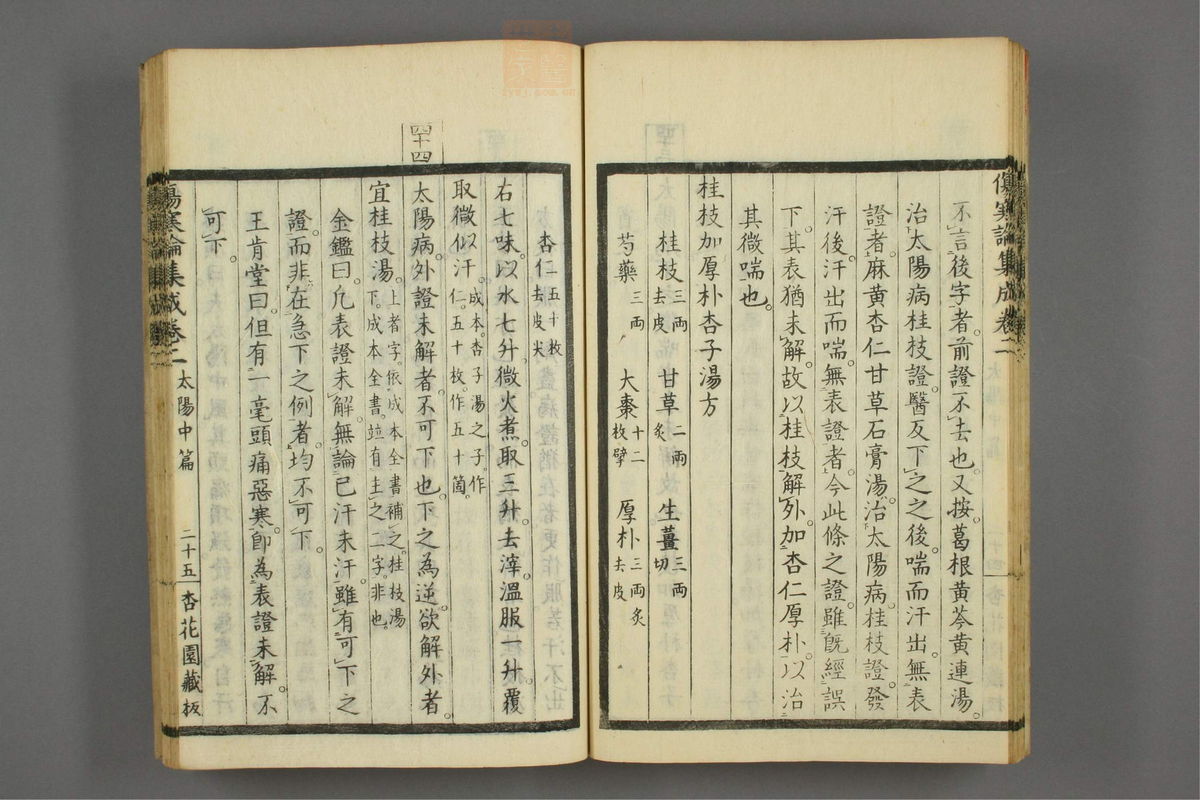 傷寒論集成卷二
不言後字者前證不去也又按葛根黃芩黃連湯
治太陽病桂枝證醫反下之之後喘而汗出無表
證者麻黃杏仁甘草石膏湯治太陽病桂枝證發
汗後汗出而喘無表證者今此條之證雖既經誤
下其表猶未解故以桂枝解外加杏仁厚朴以治
其微喘也
桂枝加厚朴杏子湯方
桂枝三兩去皮 甘草二兩炙 生薑三兩切
芍藥三兩 大棗十二枚擘 厚朴三兩炙去皮
杏仁五十枚去皮尖
右七味以水七升微火煮取三升去滓溫服一升覆
取微似汗成本杏子湯之子作仁五十枚作五十箇
四十四
太陽病外證未解者不可下也下之為逆欲解外者
宜桂枝湯上者字依成本全書補之桂枝湯下成本全書竝有主之二字非也
金鑑曰凡表證未解無論已汗未汗雖有可下之
證而非在急下之例者均不可下
王肯堂曰但有一毫頭痛惡寒即為表證未解不
可下
傷寒論集成卷二 太陽中篇 二十五 杏花園藏板